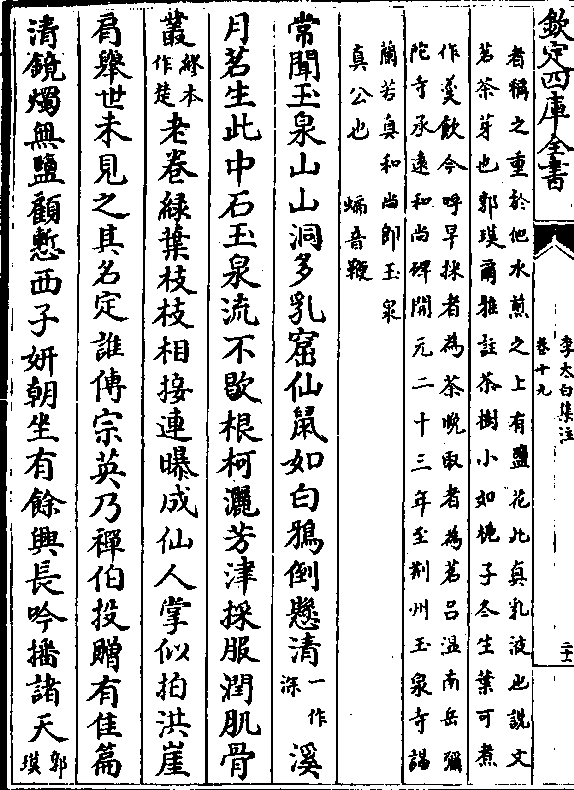 欽定四庫全書
李太白集注
卷十九
二十
者稱之重於他水煎之上有鹽花此真乳液也說文
茗茶芽也郭璞爾雅註茶樹小如梔子冬生葉可煮
作羹飲今呼早採者為茶晚取者為茗呂溫南岳彌
陀寺承遠和尚碑開元二十三年至荆州玉泉寺謁
蘭若真和尚即玉泉
真公也　蝙音鞭
常聞玉泉山山洞多乳窟仙鼠如白鴉倒懸清一作深溪
月茗生此中石玉泉流不歇根柯灑芳津採服潤肌骨
叢繆本作楚老卷綠葉枝枝相接連曝成仙人掌似拍洪崖
肩舉世未見之其名定誰傳宗英乃禪伯投贈有佳篇
清鏡燭無鹽顧慙西子妍朝坐有餘興長吟播諸天郭璞